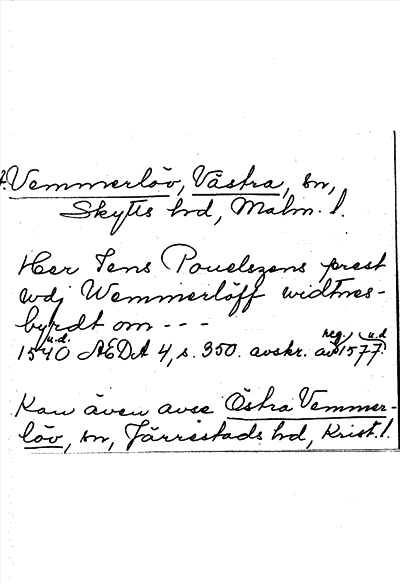 Vemmerlöv, Västra, sn,
Skytts hd, Malm. l.
Her Jens Pouelszens prest
wdj Wemmerlöff widtnes-
byrdt om - - -
1540 u.d. ÆDA 4, s. 350. avskr. av reg. 1577 u.d.
Kan även avse Östra Vemmer-
löv, sn, Järrestads hd, Krist. l.